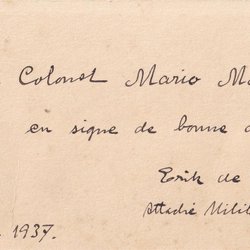 Colonel Mario M
en signe de bonne
Erik de
Attaché Milit
1937.